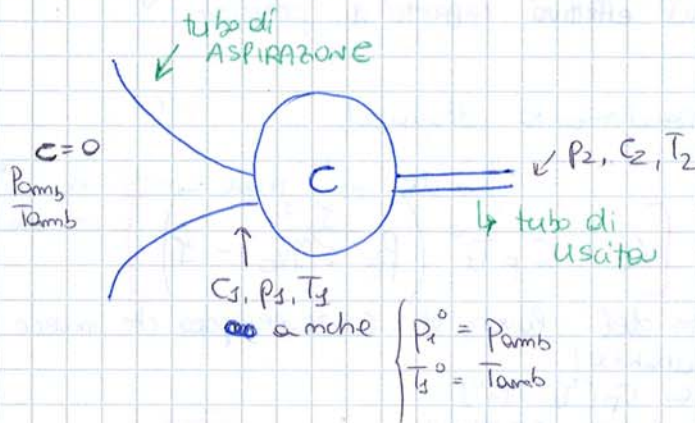 tubo di
ASPIRAZIONE
c = 0
Pamb
Tamb
C
p2, C2, T2
tubo di
uscita
C1, p1, T1
anche
p1° = Pamb
T1° = Tamb